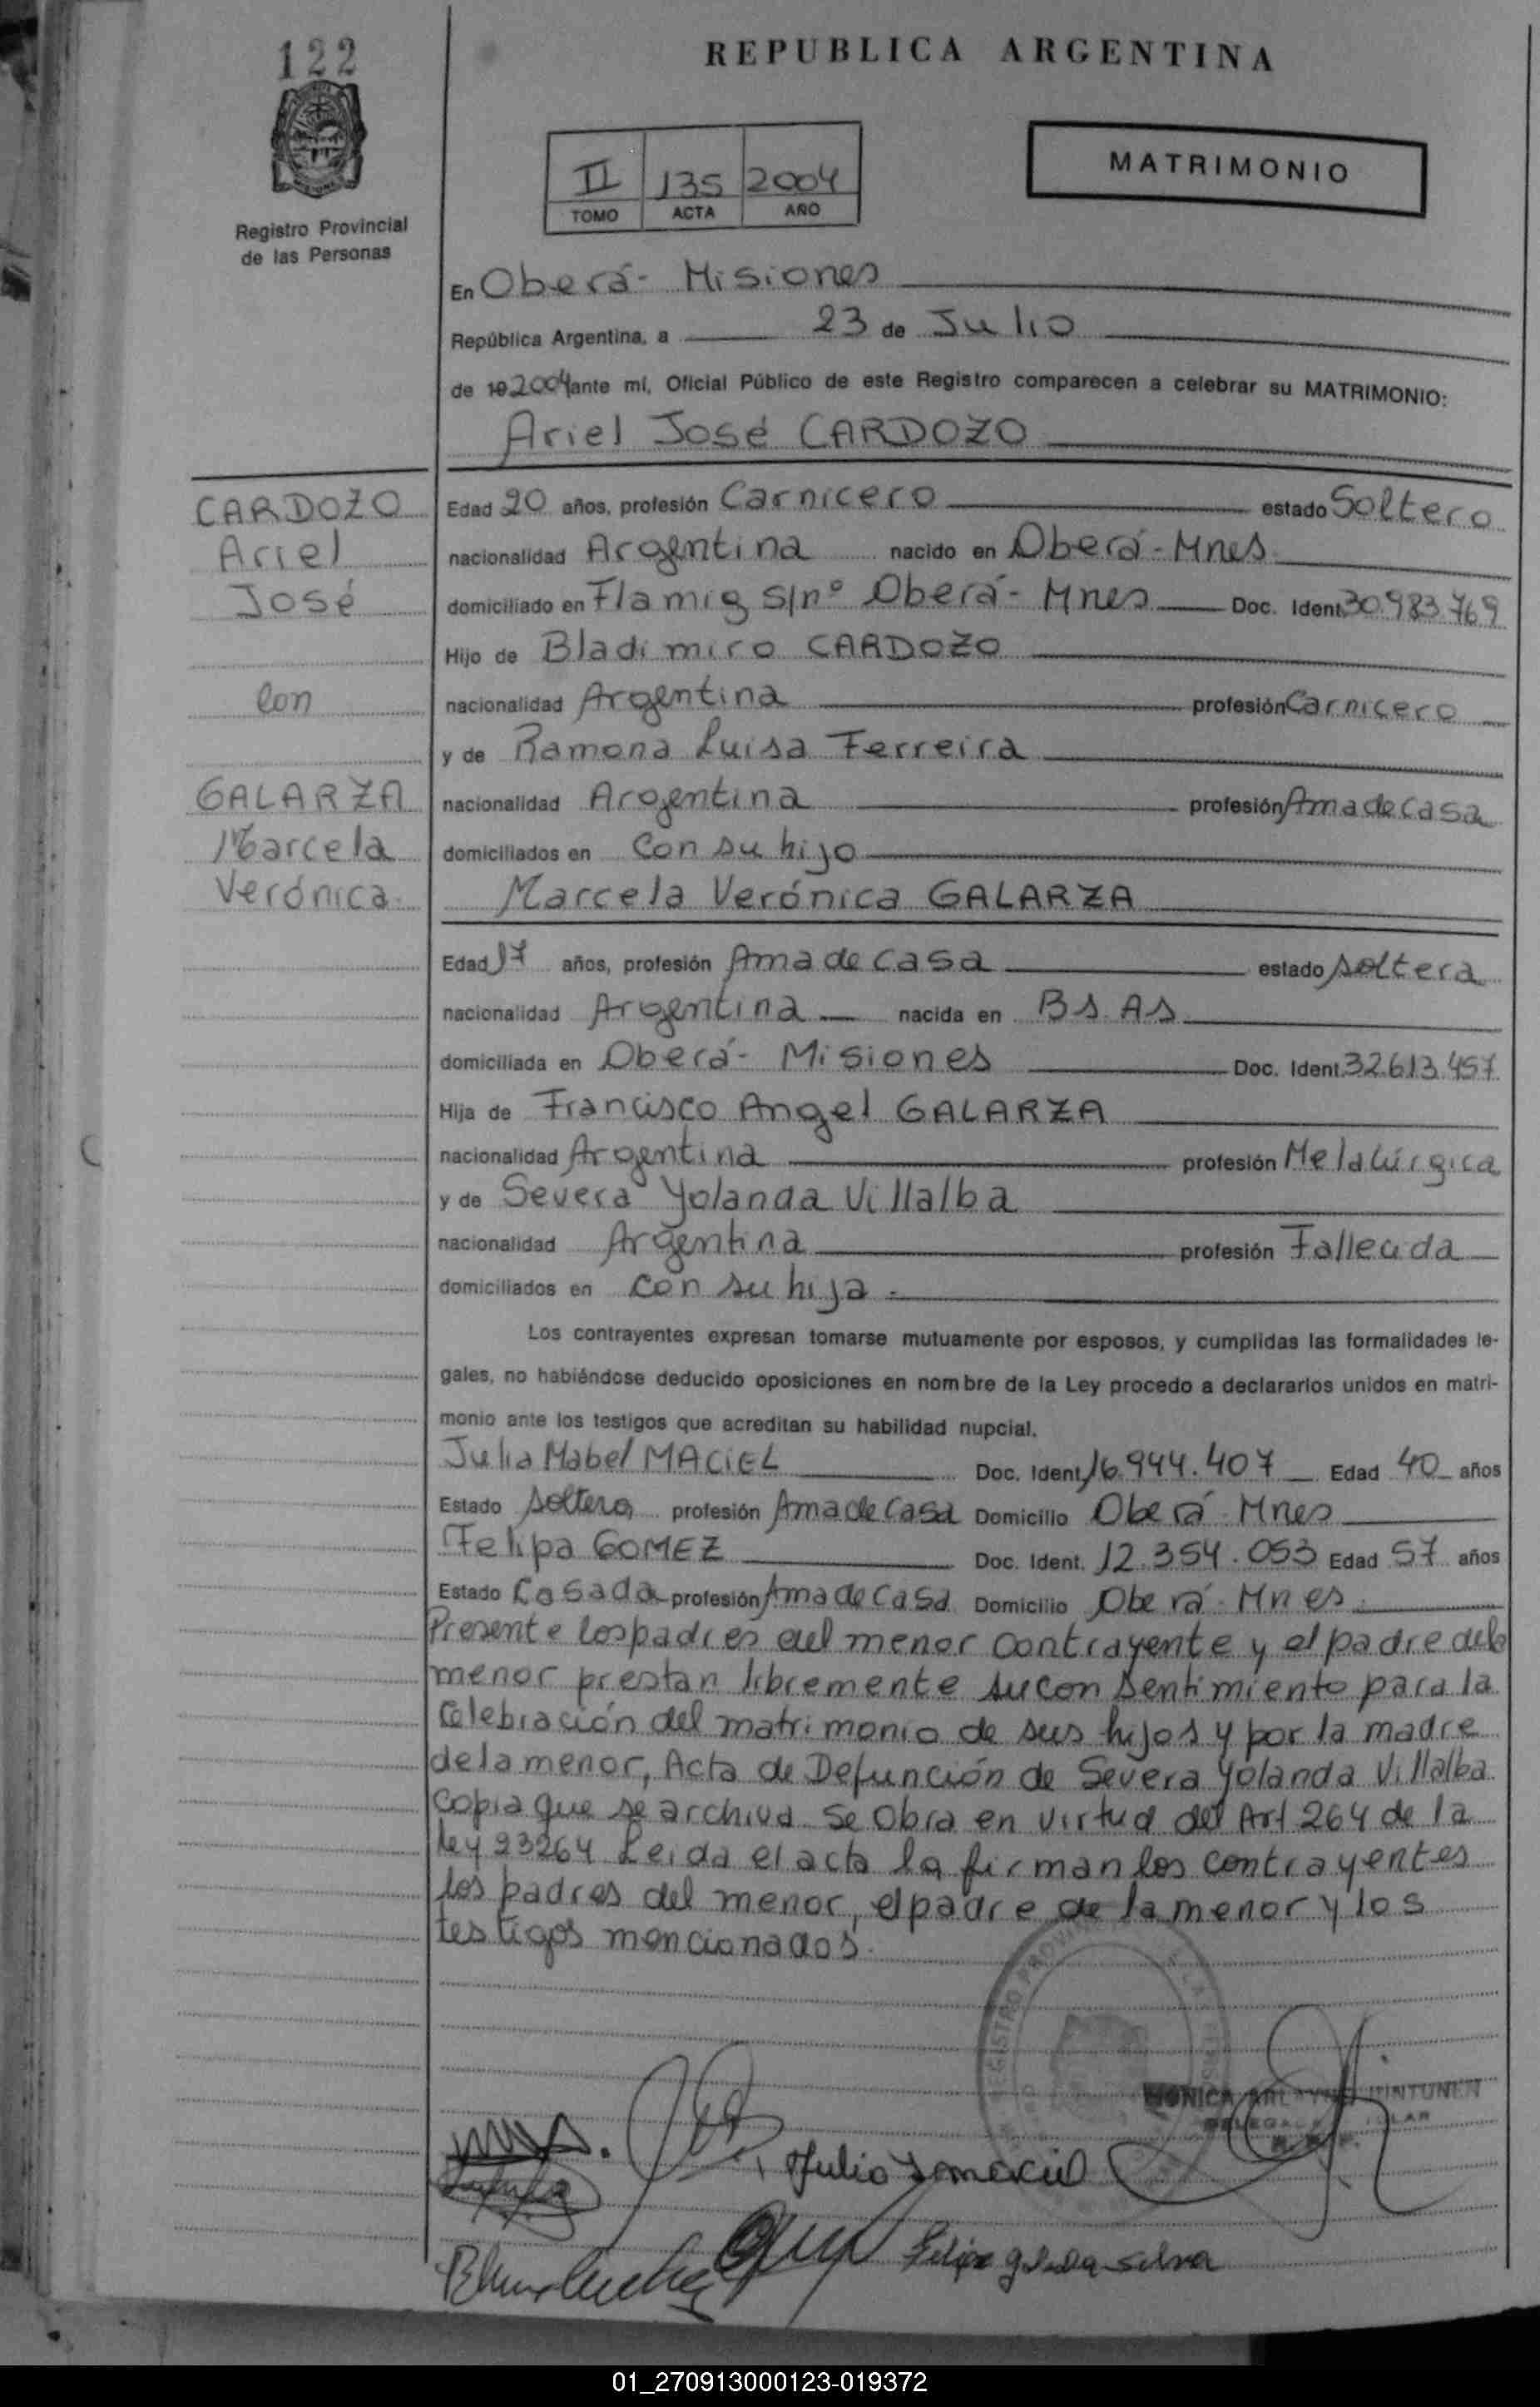 122
REPUBLICA ARGENTINA
Registro Provincial
de las Personas
II 135 2004
TOMO ACTA AÑO
MATRIMONIO
En Oberá - Misiones
República Argentina, a 23 de Julio
de 19 2004 ante mí, Oficial Público de este Registro comparecen a celebrar su MATRIMONIO:
Ariel José CARDOZO
CARDOZO
Ariel
José
con
GALARZA
Marcela
Verónica
Edad 20 años, profesión Carnicero estado Soltero
nacionalidad Argentina nacido en Oberá - Mnes
domiciliado en Flamig s/nº Oberá - Mnes Doc. Ident. 30.983.769
Hijo de Bladimiro CARDOZO
nacionalidad Argentina profesión Carnicero
y de Ramona Luisa Ferreira
nacionalidad Argentina profesión Ama de casa
domiciliados en Con su hijo
Marcela Verónica GALARZA
Edad 17 años, profesión Ama de casa estado soltera
nacionalidad Argentina nacida en Bs. As.
domiciliada en Oberá - Misiones Doc. Ident. 32.613.457
Hija de Francisco Angel GALARZA
nacionalidad Argentina profesión Metalúrgica
y de Severa Yolanda Villalba
nacionalidad Argentina profesión Fallecida
domiciliados en con su hija.
Los contrayentes expresan tomarse mutuamente por esposos, y cumplidas las formalidades le-
gales, no habiéndose deducido oposiciones en nombre de la Ley procedo a declararlos unidos en matri-
monio ante los testigos que acreditan su habilidad nupcial.
Julia Mabel MACIEL Doc. Ident. 16.944.407 Edad 40 años
Estado soltera profesión Ama de Casa Domicilio Oberá - Mnes
Felipa GOMEZ Doc. Ident. 12.354.053 Edad 57 años
Estado Casada profesión Ama de Casa Domicilio Oberá - Mnes.
Presente los padres del menor contrayente y el padre de la
menor prestan libremente su consentimiento para la
Celebración del matrimonio de sus hijos y por la madre
de la menor, Acta de Defunción de Severa Yolanda Villalba
Copia que se archiva. Se Obra en virtud del Art 264 de la
ley 23264 Leida el acta la firman los contrayentes
los padres del menor, el padre de la menor y los
testigos mencionados.
REGISTRO
MONICA
01_270913000123-019372